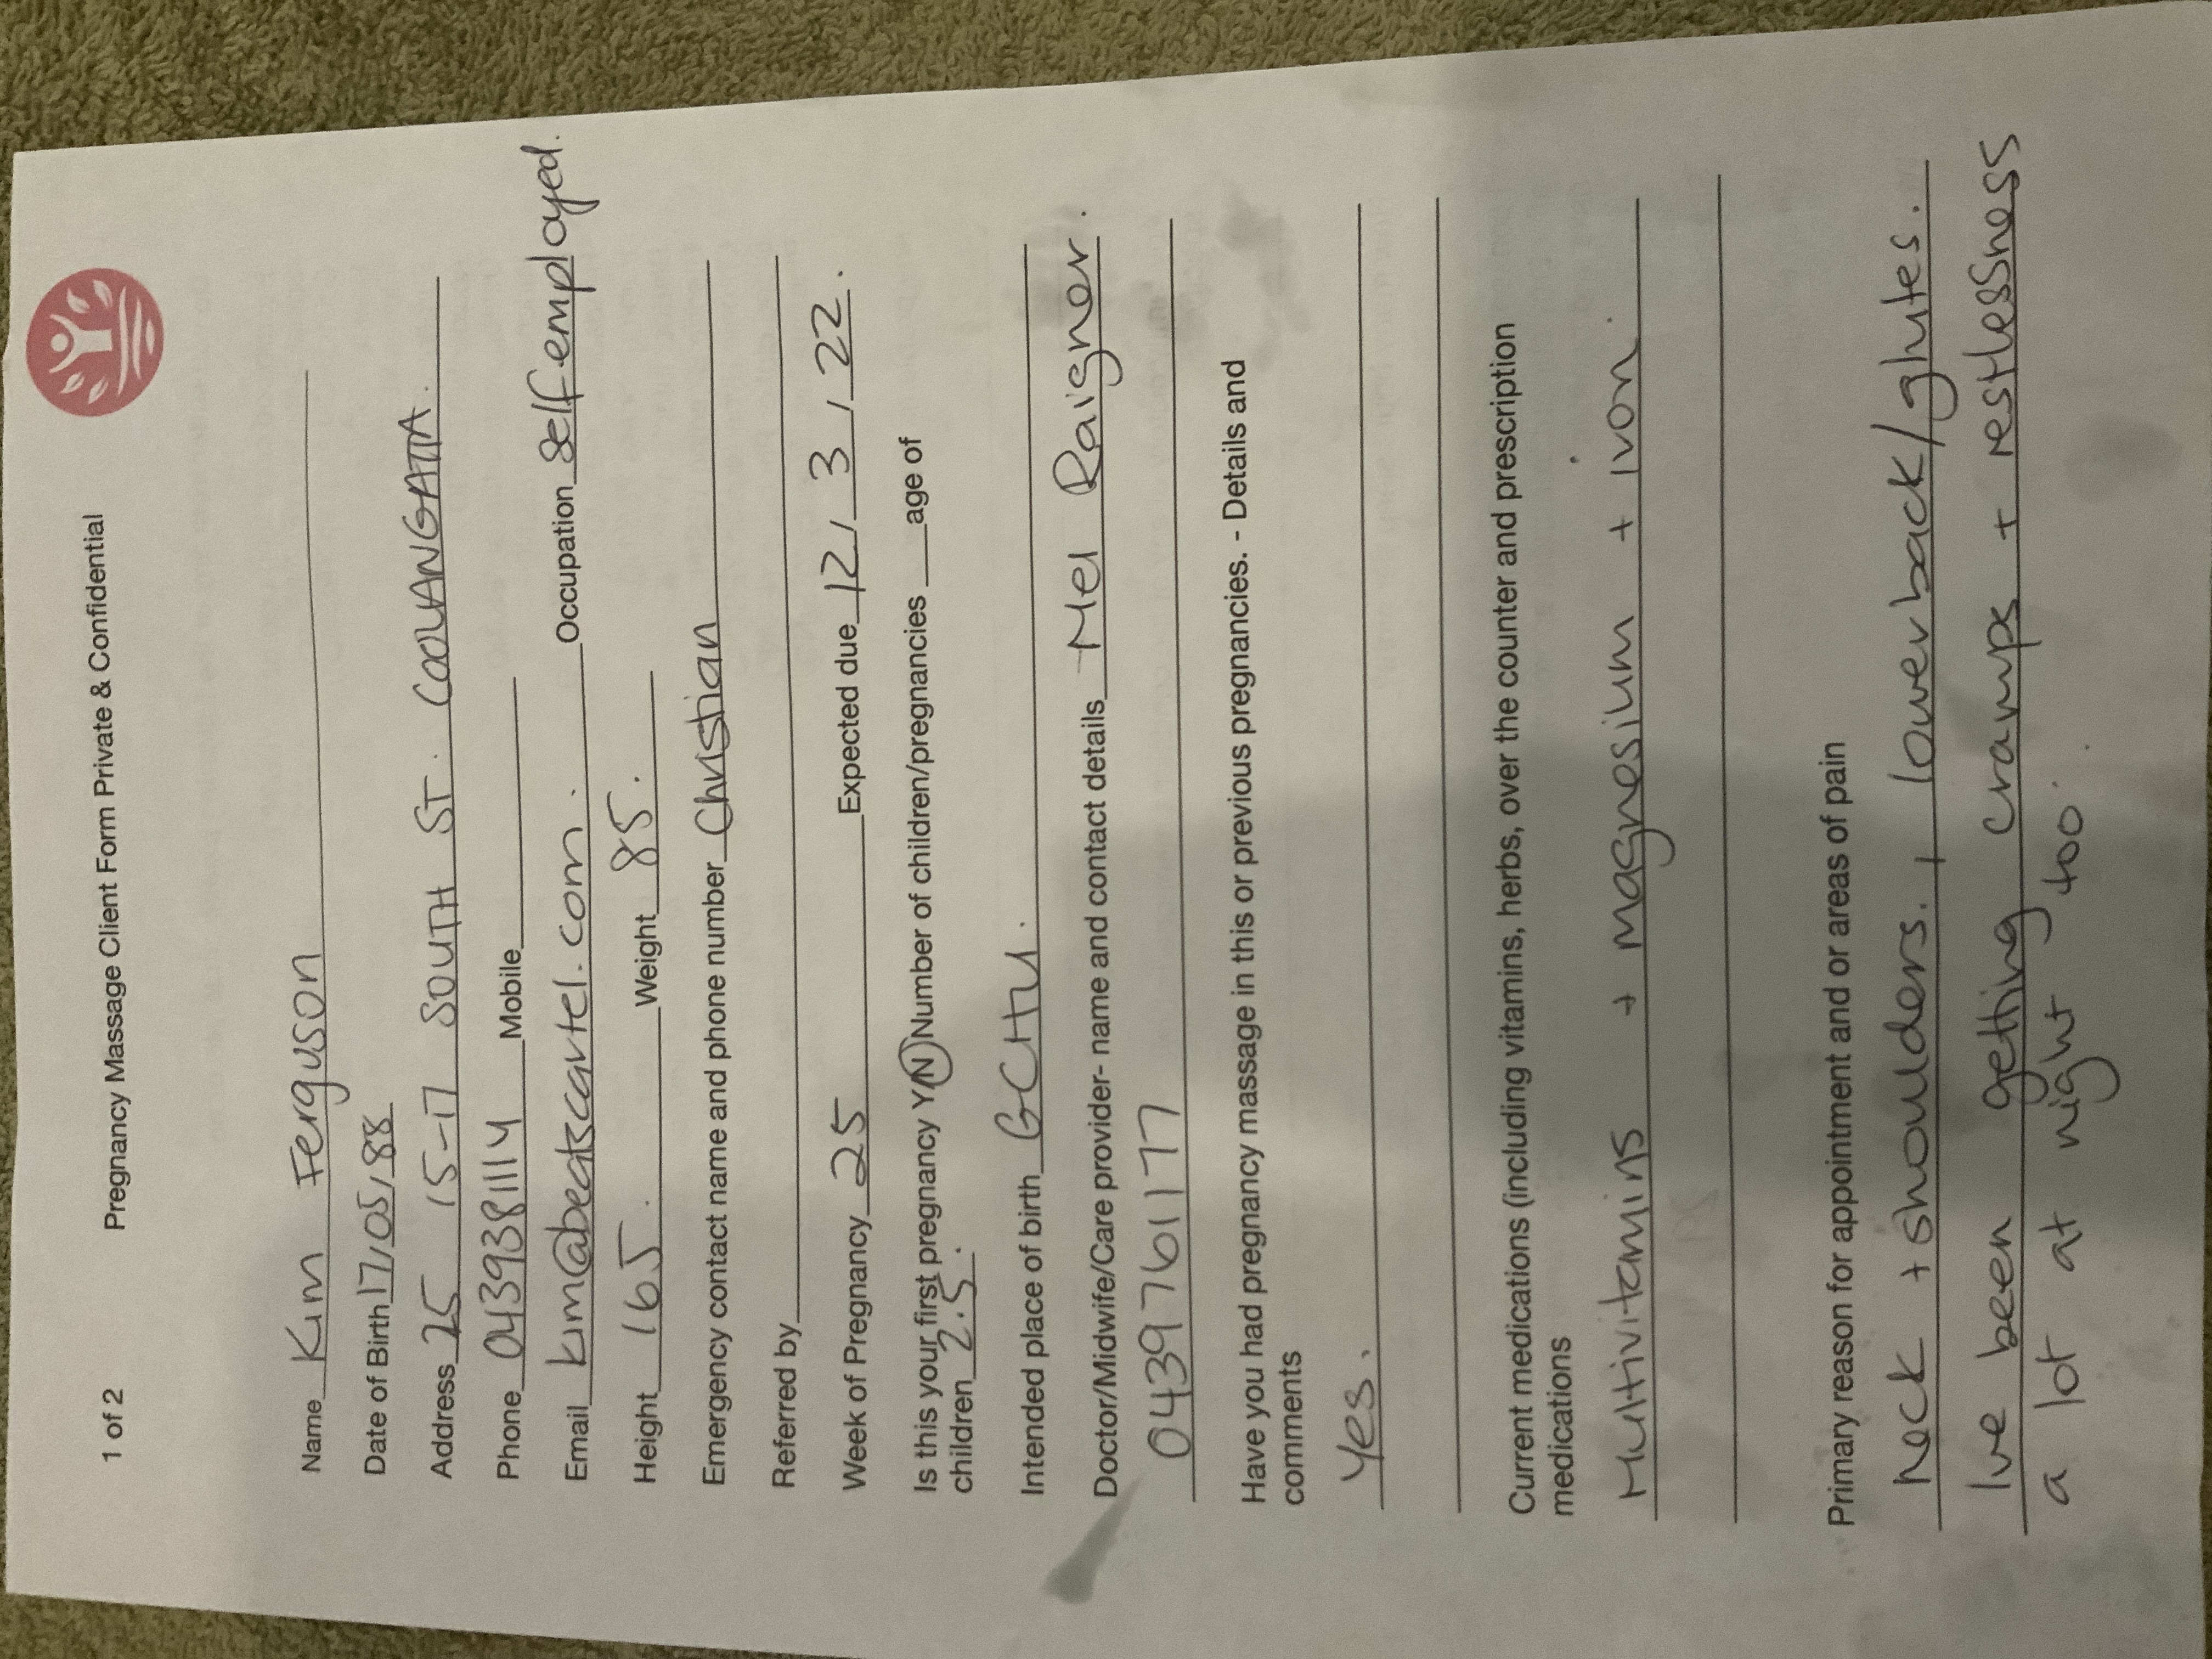 1 of 2 Pregnancy Massage Client Form Private & Confidential
Name Kim Ferguson
Date of Birth 17/05/88
Address 25 15-17 SOUTH ST. COOLANGATTA.
Phone 0439381114 Mobile
Email kim@abeatscartel.com. Occupation self employed.
Height 165. Weight 85.
Emergency contact name and phone number Christian
Referred by
Week of Pregnancy 25 Expected due 12/3/22.
Is this your first pregnancy Y/N Number of children/pregnancies age of
children 2.5.
Intended place of birth GCHU.
Doctor/Midwife/Care provider- name and contact details Mel Raigner.
0439761177
Have you had pregnancy massage in this or previous pregnancies. - Details and
comments
Yes.
Current medications (including vitamins, herbs, over the counter and prescription
medications
Multivitamins + magnesium + iron.
Primary reason for appointment and or areas of pain
Neck + shoulders. , lower back/glutes.
Ive been getting cramps + restlessness
a lot at night too.